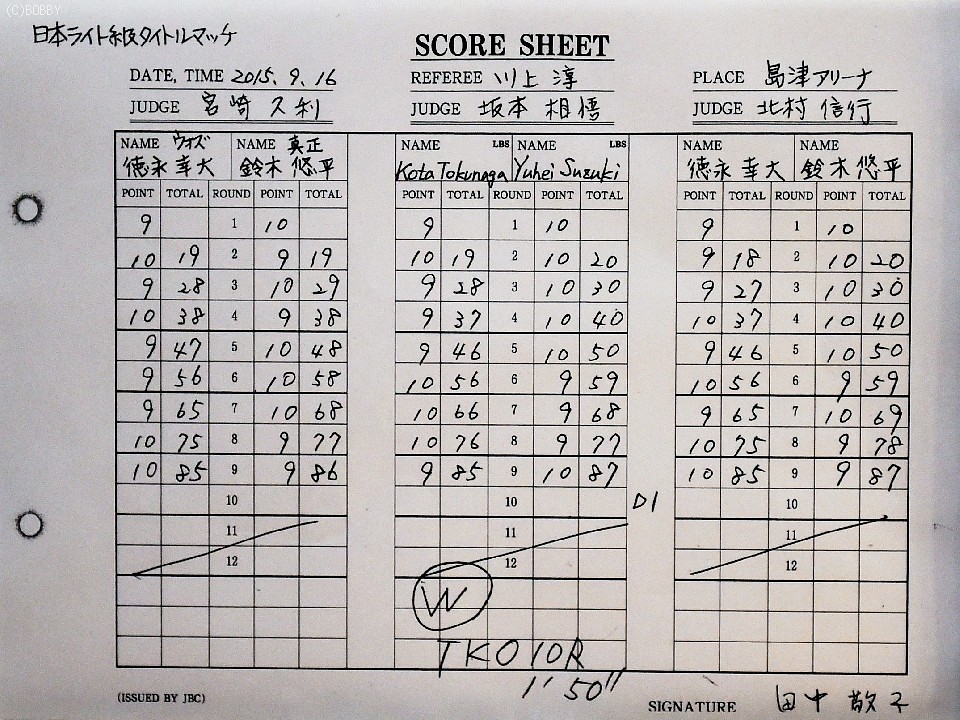 (C)BOBBY
日本ライト級タイトルマッチ
SCORE SHEET
DATE, TIME 2015.9.16 REFEREE 川上 淳 PLACE 島津アリーナ
JUDGE 宮崎 久利 JUDGE 坂本 相悟 JUDGE 北村 信行
NAME ウォズ NAME 真正 NAME LBS NAME LBS NAME NAME
徳永 幸大 鈴木 悠平 Kota Tokunaga Yuhei Suzuki 徳永 幸大 鈴木 悠平
POINT TOTAL ROUND POINT TOTAL POINT TOTAL ROUND POINT TOTAL POINT TOTAL ROUND POINT TOTAL
9 1 10 9 1 10 9 1 10
10 19 2 9 19 10 19 2 10 20 9 18 2 10 20
9 28 3 10 29 9 28 3 10 30 9 27 3 10 30
10 38 4 9 38 9 37 4 10 40 10 37 4 10 40
9 47 5 10 48 9 46 5 10 50 9 46 5 10 50
9 56 6 10 58 10 56 6 9 59 10 56 6 9 59
9 65 7 10 68 10 66 7 9 68 9 65 7 10 69
10 75 8 9 77 10 76 8 9 77 10 75 8 9 78
10 85 9 9 86 9 85 9 10 87 10 85 9 9 87
10 10 D1 10
11 11 11
12 12 12
W
TKO 10R
1'50"
(ISSUED BY JBC) SIGNATURE 田中 敬子